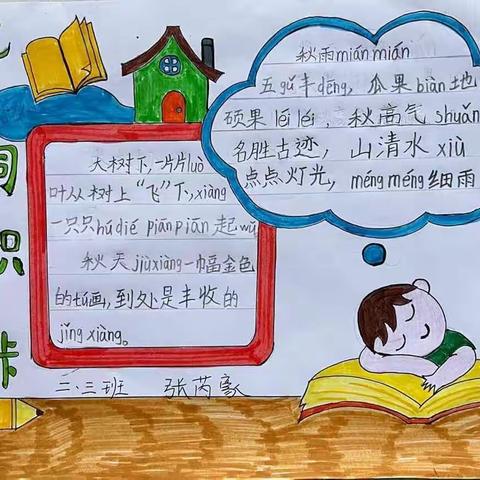 词识卡
大树下,一片片luò
叶从树上“飞”下,xiàng
一只只húdié piānpiān起wǔ
秋天jiùxiàng一幅金色
的tú画,到处是丰收的
jǐng xiàng。
三.三班 张芮豪
秋雨mián mián
五gǔ丰dēng,瓜果biàn地
硕果lěi lěi,秋高气shuǎng
名胜古迹,山清水xiù
点点灯光,méng méng细雨